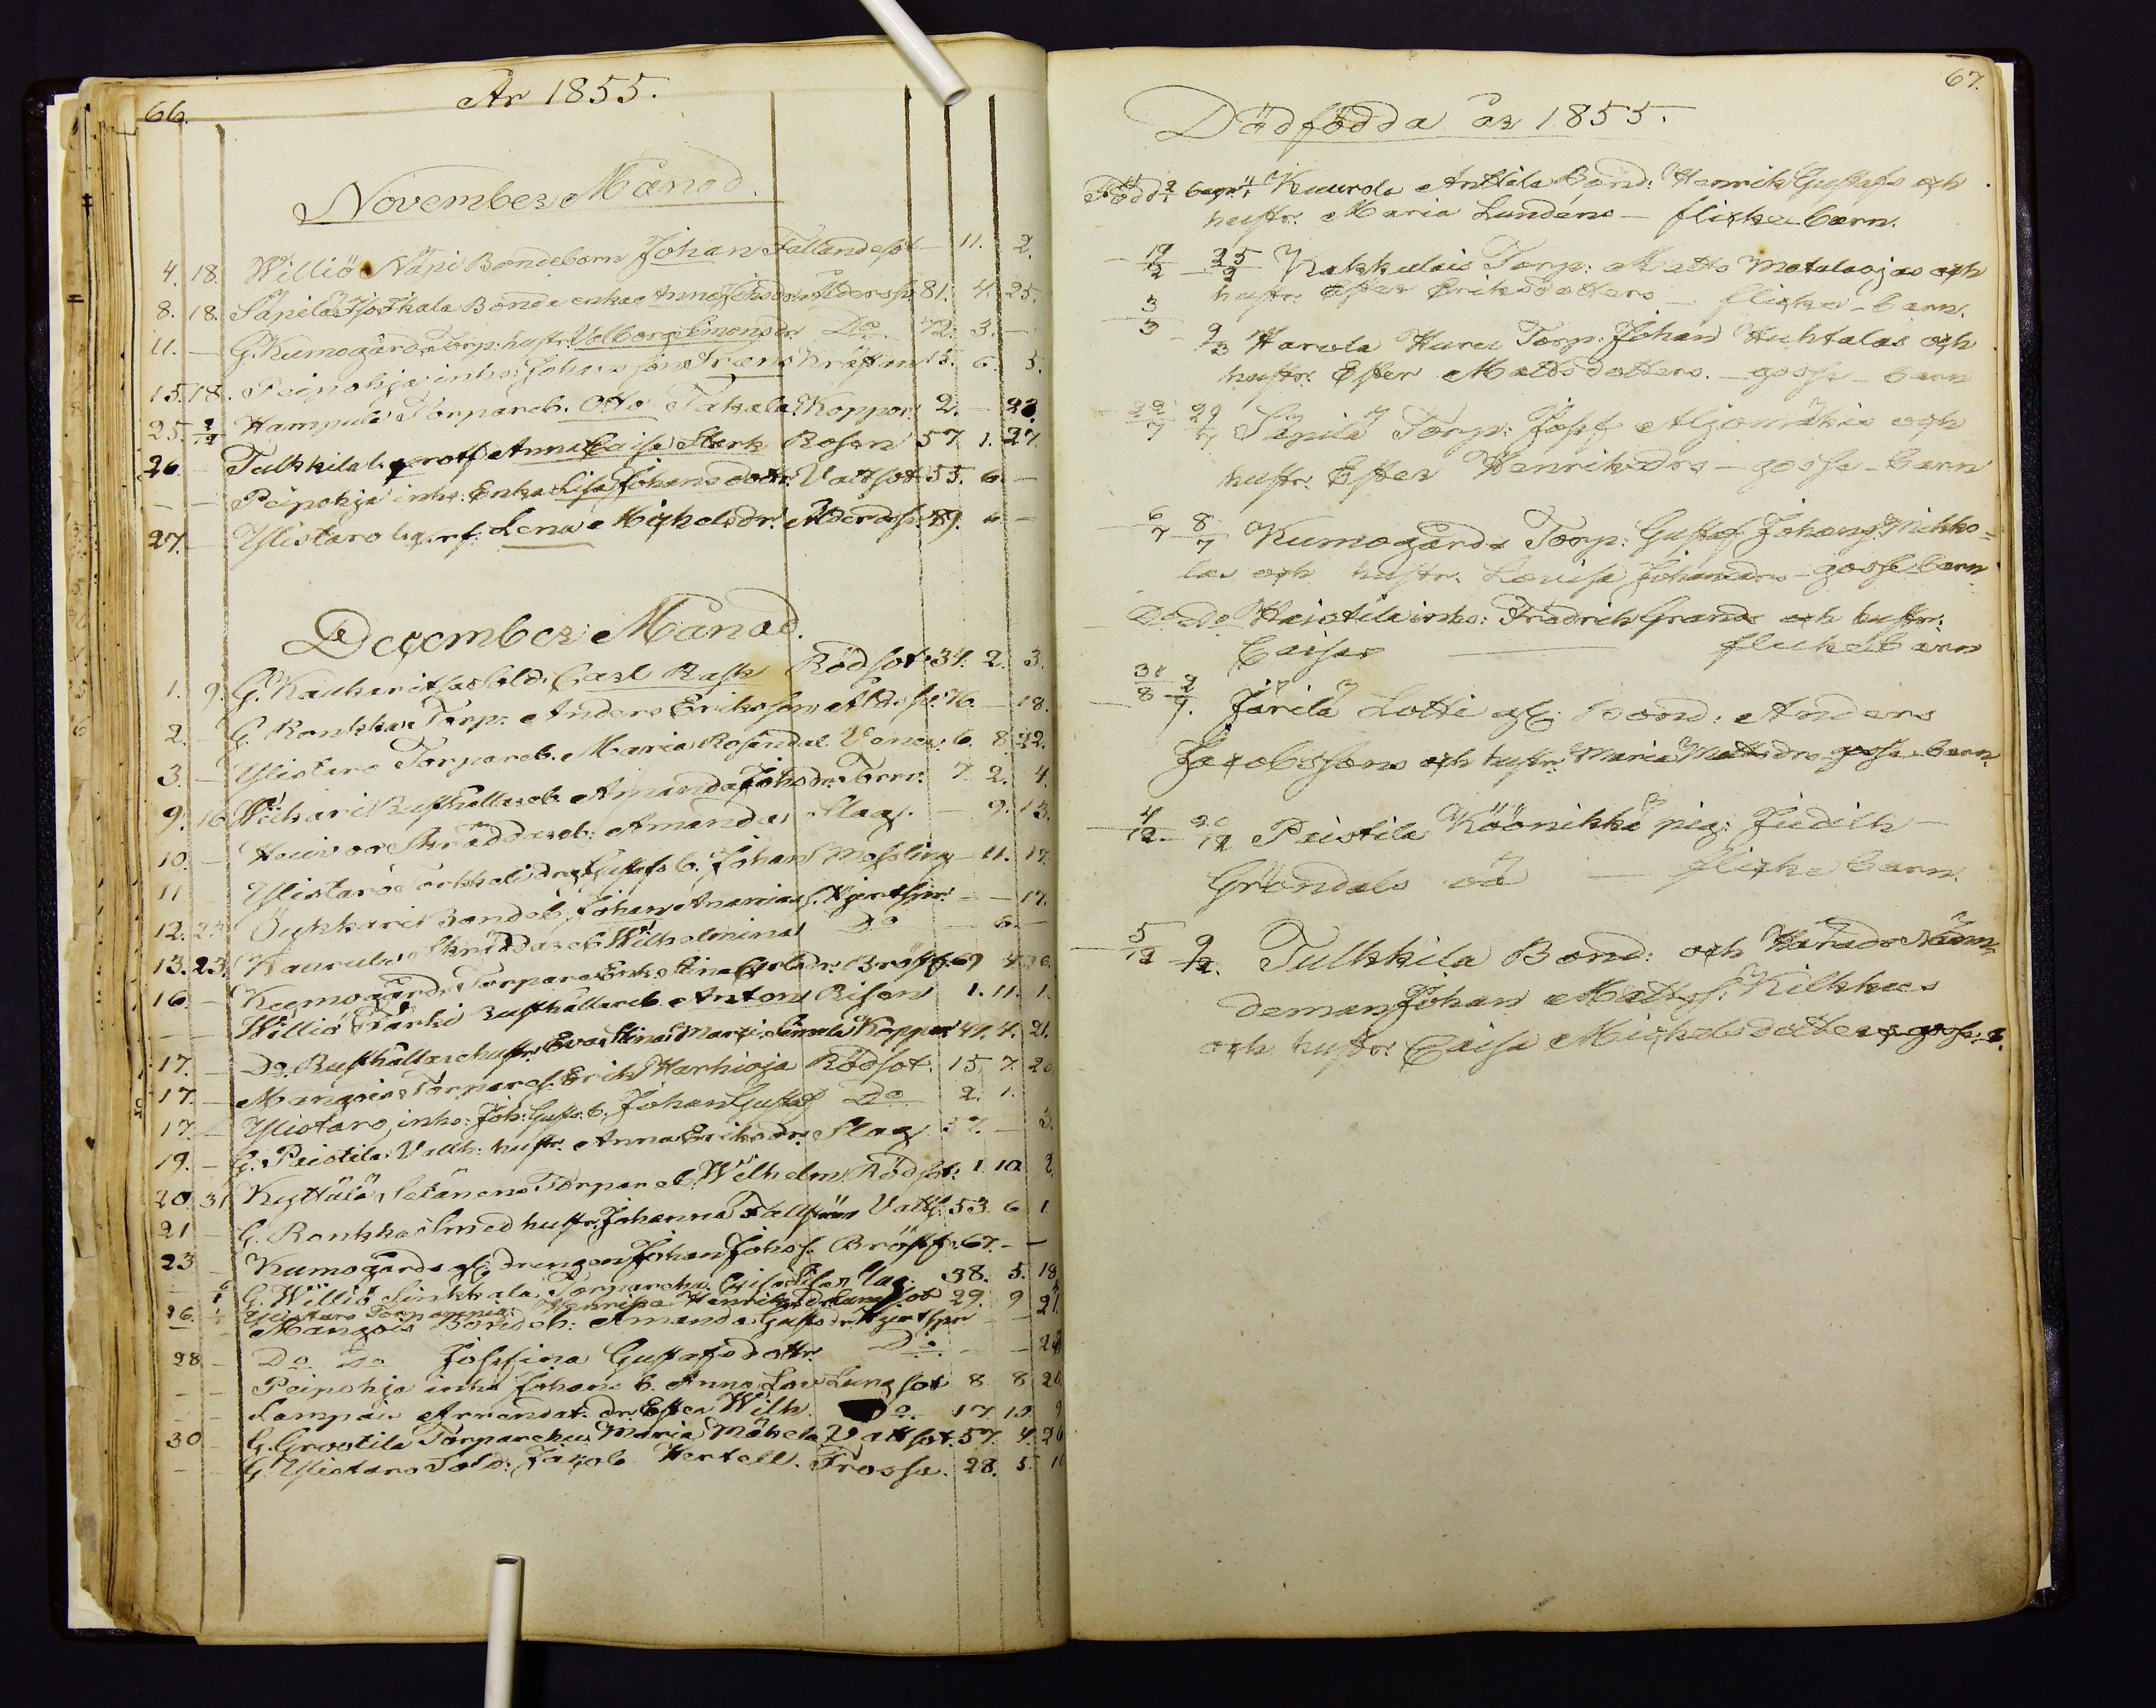 66.
År 1855.
November Månad.
4. 18. Williö Näpi Bondebarn Johan Fallandesot – 11. 2.
8. 18. Säpilä Iso Ihala Bonde enka Anna Johsdr. Åldersb. 81. 4. 25.
11. – G. Kumogård Torp: hustr. Valborg Simonsdr. Do 72. 3. –
15. 18. Peipohja inhs: Johans son Frans Kräftan 15. 6. 5.
25. 2/12 Hampula Torpareb. Otto Takala Koppor 2. – 23.
26. – Tulkkila Anna Caisa Stark Rosen 57. 1. 27.
– – Peipohja inhs: Enka Lisa Johansdottr. Vattsot 55. 6. –
27. – Ylistaro Lena Michelsdr. Åldersb. 89. 6 –
December Månad.
1. 9. G. Kauharitsa Sold. Carl Rask Rödsot 34. 2. 3.
2. – G. Ronkka Torp: Anders Eriksson Ålders. 76. – 18.
3. – Ylistaro Torpareb. Maria Rosendal Vener. 6. 8. 22.
9. 16. Rusthållareb. Amanda Johsdr. Torrv. 7. 2. 4.
10. – Skräddareb: Amanda Slag. – 9. 13.
11 – Ylistaro Torkkeli dr. Gustafs b. Johan Messling – 11. 17.
12. 23 Bondeb. Johan Ananias – – 17.
13. 23. Skräddareb. Wilhelmina Do – 6. –
16. – Kumogårds Torpare Enka Stina Carlsdr. Bröstf. 69 4. 26.
– – Williö Pärki Rusthållareb. Anton Risen 1. 11. 1.
17. – Do. Rusthållarehustr. Eva Stina Koppor 41. 4. 21.
17. – Mangois Torpares. Erik Harhioja Rödsot. 15 7. 20
17. – Ylistaro, inhs: Joh: Gust. b. Johan Gustaf Do 2. 1.
19. – G. Peistila Vallh: hustr. Anna Eriksdr. Slag 57. – 3.
20. 31. Kyttälä Setänens Torpareb. Wilhelm Rödsot. 1. 10. 2.
21 – G. Ronkka Smed hustr. Johanna Vatts. 53 6 1
23 – Kumogårds Drengen Johan Johs. Bröstf. 67. – –
– G. Williö Sinkkala Torpareh. Caisa Slag. 38. 5. 18
Ylistaro Torparepig: Henrika Henriksdr. Lungsot 29. 9 21
26. – Mangois Bondeb: Amanda Gustsdr.
28 – Do Do Josefina Gustafsdottr. Do – – 28
– – Peipohja inhs Johans b. Anna Lov. Lungsot 8 8 20.
– – Lampais Arrendat. dr. Ester Wilh. Do. 17 10 9
30 – G. Grootila Torparehu. Maria Mäkelä Vattsot. 57. 4. 26
– – G. Ylistaro Sold: Jacob Hertell. Frossa. 28. 5. 10
67.
Dödfödda år 1855.
Född 2/1 begr. Kuurola Anttila Bond: Henrik Gustafs och
hustr. Maria Lundéns – flicke barn.
19/2 25/2 Kakkulais Torp: Matts Matalaojas och
hustr. Ester Eriksdotters – flicke-barn.
3/3 9/3 Harola Huru Torp: Johan Huhtalas och
hustr. Ester Mattsdotters. – gosse-barn
22/7 29/7 Säpilä Torp: Josef Aljomäkis och
hustr. Ester Henriksdrs – gosse-barn
6/7 8/7 Kumogårds Torp: Gustaf Johans Mikko=
las och hustr. Lovisa Johansdrs – gosse barn
Do Do Haistila inhs: Fredrich Grands och hustr:
Caisas – flicke barn
31/8 2/9. Järilä Lotti Bond: Anders
Jacobssons och hustr. Maria Mattsdrs gosse-barn.
4/12 – 20/12 Peistila Köönikkä pig: Judith –
Gröndals oä – flicke barn.
5/12 9/12. Tulkkila Bond: och Härads Nämn=
deman Johan Mattss: Kilkkus
och hustr: Caisa Michelsdotters gosse: b.